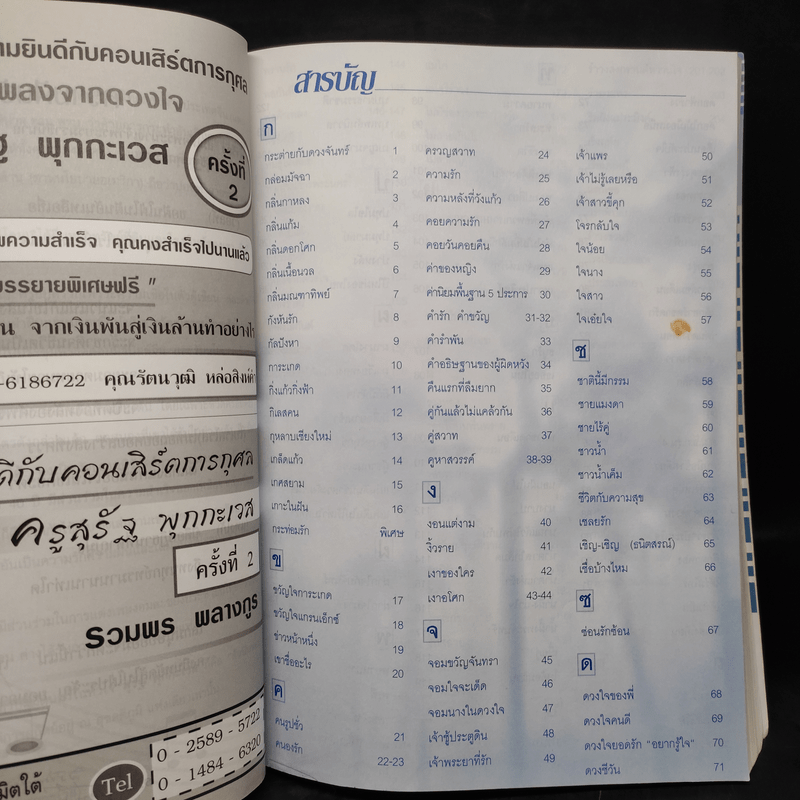 ามยินดีกับคอนเสิร์ตการกุศล
พลงจากดวงใจ
ฐ พุกกะเวส
ครั้งที่
2
พความสำเร็จ คุณคงสำเร็จไปนานแล้ว
บรรยายพิเศษฟรี "
น จากเงินพันสู่เงินล้านทำอย่างไ
-6186722 คุณรัตนวุฒิ หล่อสิงห์คำ
ดีกับคอนเสิร์ตการกุศล
ครูสุรัฐ พุกกะเวส
ครั้งที่ 2
รวมพร พลางกูร
0 - 2589 - 5722
มิตใต้
Tel
0 - 1484 - 6320
สารบัญ
ก
กระต่ายกับดวงจันทร์ 1
กล่อมมัจฉา 2
กลิ่นกาหลง 3
กลิ่นแก้ม 4
กลิ่นดอกโศก 5
กลิ่นเนื้อนวล 6
กลิ่นมณฑาทิพย์ 7
กังหันรัก 8
กัลปังหา 9
การะเกด 10
กิ่งแก้วกิ่งฟ้า 11
กิเลสคน 12
กุหลาบเชียงใหม่ 13
เกล็ดแก้ว 14
เกศสยาม 15
เกาะในฝัน 16
กระท่อมรัก พิเศษ
ข
ขวัญใจการะเกด 17
ขวัญใจแกรนเอ็กซ์ 18
ข่าวหน้าหนึ่ง 19
เขาชื่ออะไร 20
ค
คนรูปชั่ว 21
คนองรัก 22-23
ครวญสวาท 24
ความรัก 25
ความหลังที่วังแก้ว 26
คอยความรัก 27
คอยวันคอยคืน 28
ค่าของหญิง 29
ค่านิยมพื้นฐาน 5 ประการ 30
คำรัก คำขวัญ 31-32
คำรำพัน 33
คำอธิษฐานของผู้ผิดหวัง 34
คืนแรกที่ลืมยาก 35
คู่กันแล้วไม่แคล้วกัน 36
คู่สวาท 37
คูหาสวรรค์ 38-39
ง
งอนแต่งาม 40
งิ้วราย 41
เงาของใคร 42
เงาอโศก 43-44
จ
จอมขวัญจันทรา 45
จอมใจจะเด็ด 46
จอมนางในดวงใจ 47
เจ้าชู้ประตูดิน 48
เจ้าพระยาที่รัก 49
เจ้าแพร 50
เจ้าไม่รู้เลยหรือ 51
เจ้าสาวขี้คุก 52
โจรกลับใจ 53
ใจน้อย 54
ใจนาง 55
ใจสาว 56
ใจเอ๋ยใจ 57
ช
ชาตินี้มีกรรม 58
ชายแมงดา 59
ชายไร้คู่ 60
ชาวน้ำ 61
ชาวน้ำเค็ม 62
ชีวิตกับความสุข 63
เชลยรัก 64
เชิญ-เชิญ (ธนิตสรณ์) 65
เชื่อบ้างไหม 66
ซ
ซ่อนรักซ้อน 67
ด
ดวงใจของพี่ 68
ดวงใจคนดี 69
ดวงใจยอดรัก "อยากรู้ใจ" 70
ดวงชีวัน 71